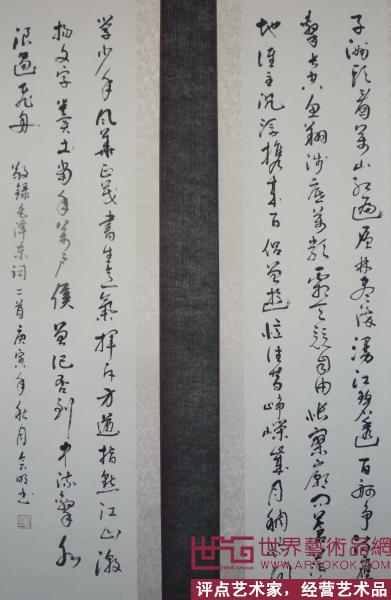 子洲头看万山红遍层林尽染漫江碧透百舸争流鹰
击长空鱼翔浅底万类霜天竞自由怅寥廓问苍茫
地谁主沉浮携来百侣曾游忆往昔峥嵘岁月稠恰同
学少年风华正茂书生意气挥斥方遒指点江山激
扬文字粪土当年万户侯曾记否到中流击水
浪遏飞舟 敬录毛泽东词二首庚寅年秋月
世界藝術品網
评点艺术家，经营艺术品